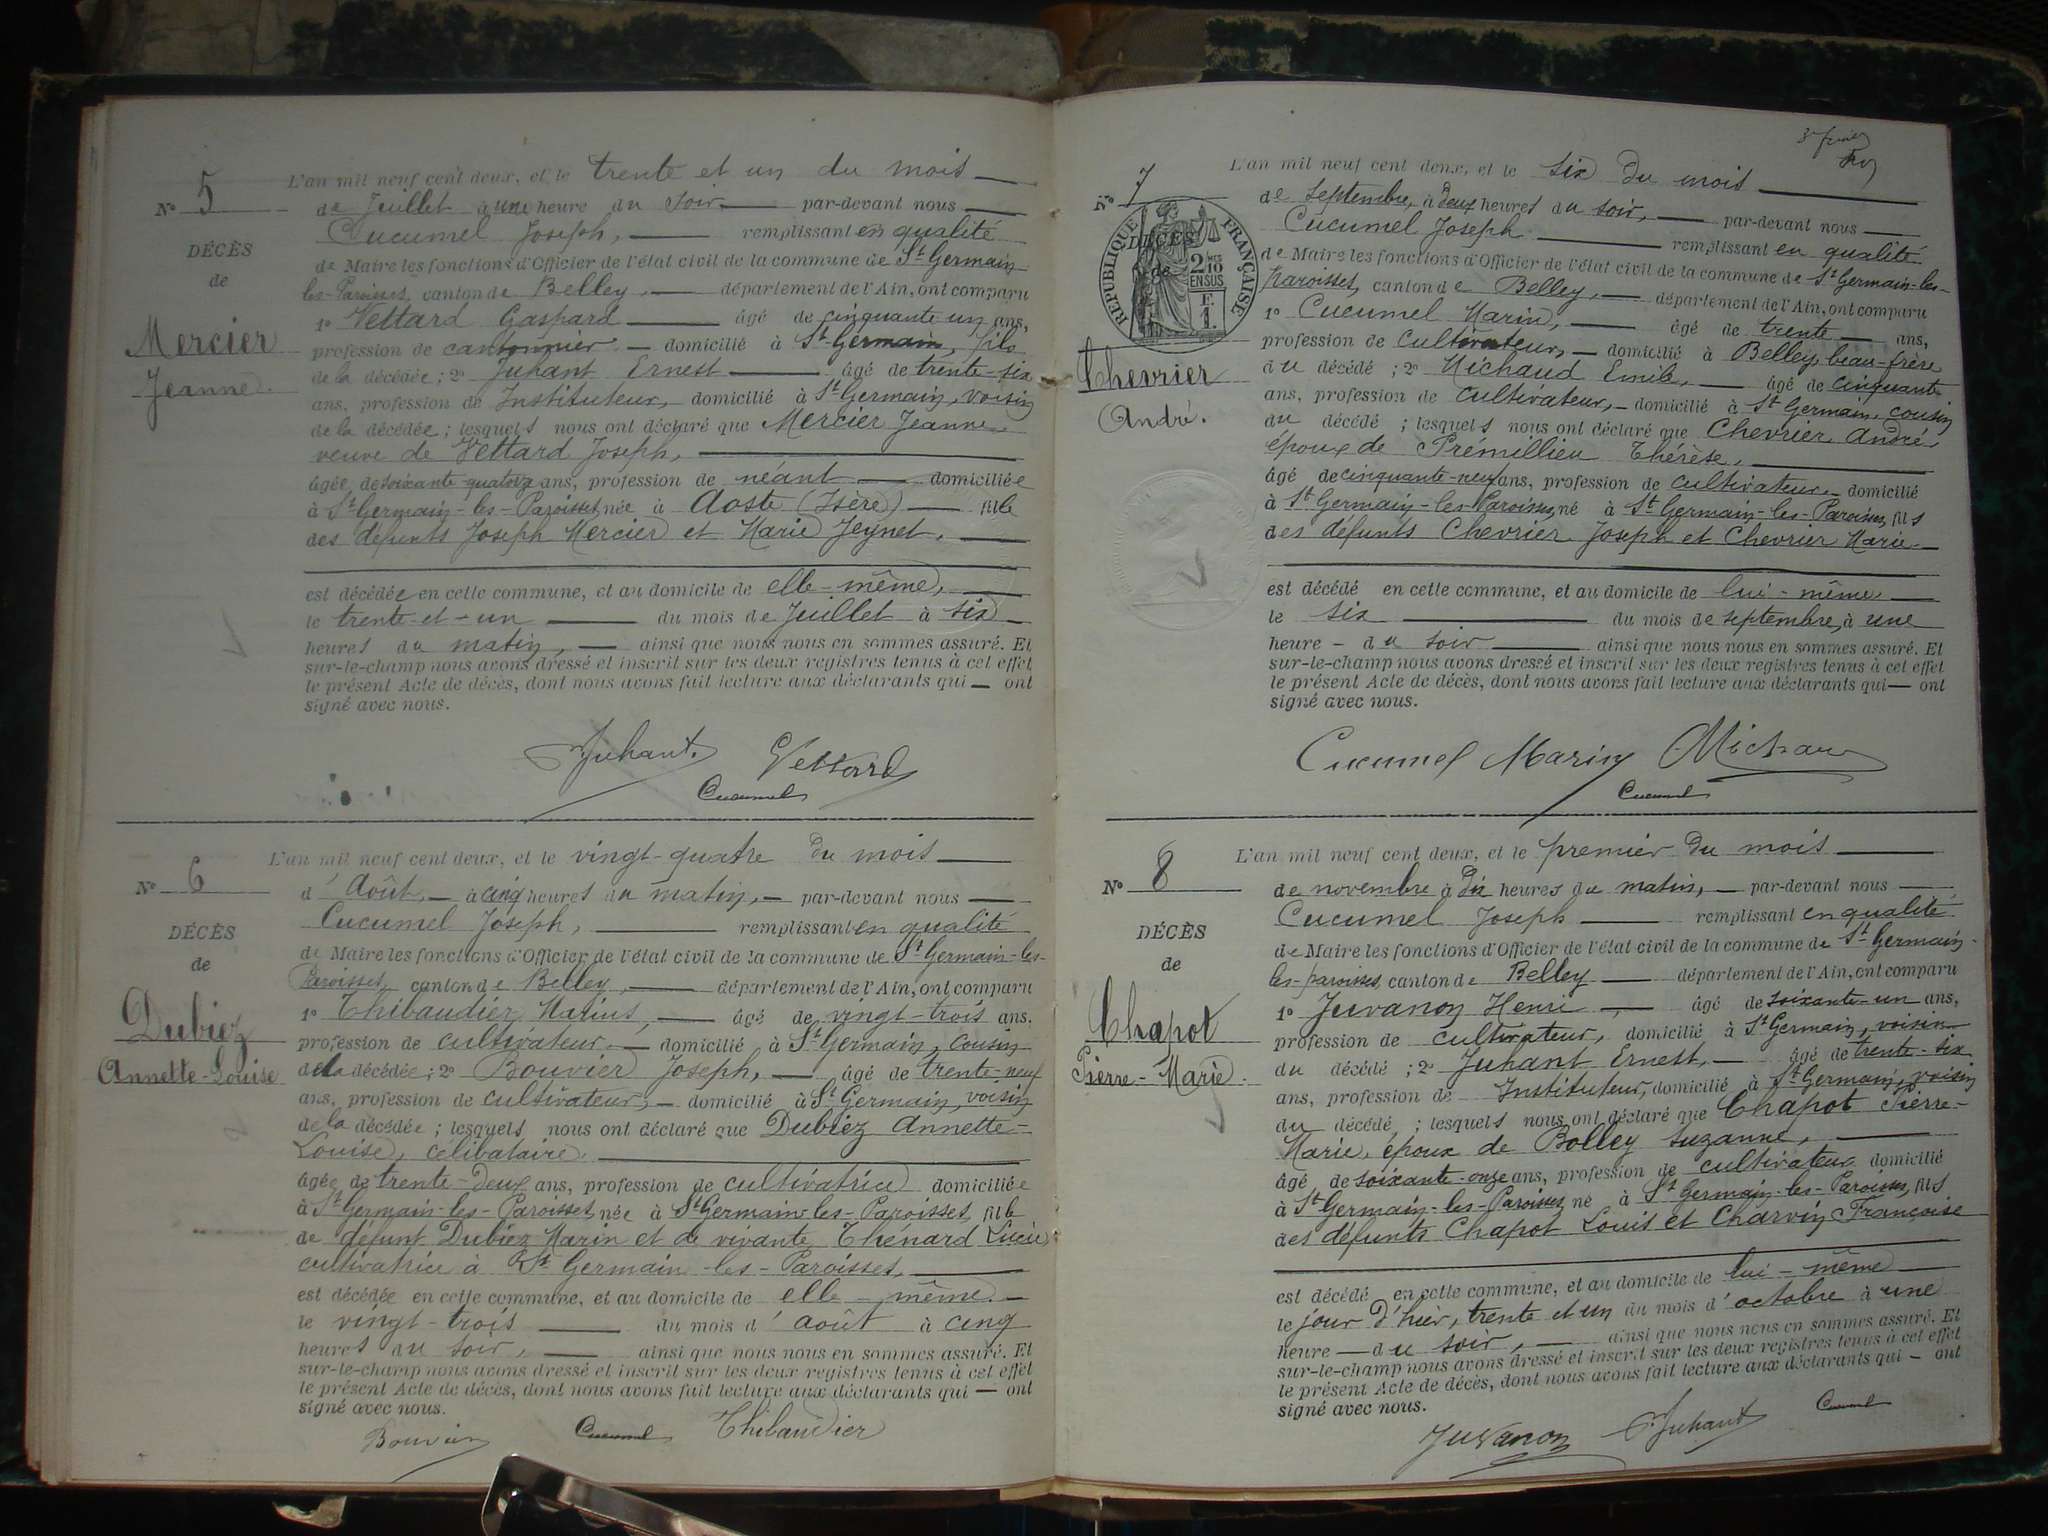 N° 5
DÉCÈS
de
Mercier
Jeanne.
L'an mil neuf cent deux, et le trente et un du mois
de Juillet à une heure du soir par-devant nous
Cucumel Joseph, remplissant en qualité
de Maire les fonctions d'Officier de l'état civil de la commune de St Germain-
les-Paroisses, canton de Belley, département de l'Ain, ont comparu
1° Vettard Gaspard âgé de cinquante un ans,
profession de cantonnier domicilié à St Germain, fils
de la décédée; 2° Juhant Ernest âgé de trente-six
ans, profession de Instituteur, domicilié à St Germain, voisin
de la décédée; lesquels nous ont déclaré que Mercier Jeanne
veuve de Vettard Joseph,
âgée de soixante-quatorze ans, profession de néant domiciliée
à St Germain-les-Paroisses née à Aoste (Isère) fille
des défunts Joseph Mercier et Marie Jeynet.
est décédée en cette commune, et au domicile de elle-même,
le trente-et-un du mois de Juillet à six
heures du matin, ainsi que nous nous en sommes assuré. Et
sur-le-champ nous avons dressé et inscrit sur les deux registres tenus à cet effet
le présent Acte de décès, dont nous avons fait lecture aux déclarants qui ont
signé avec nous.
Juhant. Vettard
Cucumel
N° 6
DÉCÈS
de
Dubiez
Annette-Louise
L'an mil neuf cent deux, et le vingt-quatre du mois
d'Août, à cinq heures du matin, par-devant nous
Cucumel Joseph, remplissant en qualité
de Maire les fonctions d'Officier de l'état civil de la commune de St Germain-les-
Paroisses, canton de Belley, département de l'Ain, ont comparu
1° Thibaudier Marius, âgé de vingt-trois ans,
profession de cultivateur, domicilié à St Germain, cousin
de la décédée; 2° Bouvier Joseph, âgé de trente-neuf
ans, profession de cultivateur, domicilié à St Germain, voisin
de la décédée; lesquels nous ont déclaré que Dubiez Annette-
Louise, célibataire
âgée de trente-deux ans, profession de cultivatrice domiciliée
à St Germain-les-Paroisses, née à St Germain-les-Paroisses, fille
de défunt Dubiez Marin et de vivante Thenard Lucie,
cultivatrice à St Germain-les-Paroisses,
est décédée en cette commune, et au domicile de elle-même
le vingt-trois du mois d'août à cinq
heures du soir, ainsi que nous nous en sommes assuré. Et
sur-le-champ nous avons dressé et inscrit sur les deux registres tenus à cet effet
le présent Acte de décès, dont nous avons fait lecture aux déclarants qui ont
signé avec nous.
Bouvier Cucumel Thibaudier
N° 7
RÉPUBLIQUE FRANÇAISE
2/10 EN SUS
F. 1.
DÉCÈS
de
Chevrier
André.
L'an mil neuf cent deux, et le six du mois
de Septembre, à deux heures du soir, par-devant nous
Cucumel Joseph remplissant en qualité
de Maire les fonctions d'Officier de l'état civil de la commune de St Germain-les-
Paroisses, canton de Belley, département de l'Ain, ont comparu
1° Cucumel Marin, âgé de trente ans,
profession de cultivateur, domicilié à Belley, beau-frère
du décédé; 2° Michaud Emile, âgé de cinquante
ans, profession de cultivateur, domicilié à St Germain, cousin
du décédé; lesquels nous ont déclaré que Chevrier André,
époux de Prémillieu Thérèse,
âgé de cinquante-neuf ans, profession de cultivateur domicilié
à St Germain-les-Paroisses, né à St Germain-les-Paroisses, fils
des défunts Chevrier Joseph et Chevrier Marie
est décédé en cette commune, et au domicile de lui-même
le six du mois de septembre, à une
heure du soir ainsi que nous nous en sommes assuré. Et
sur-le-champ nous avons dressé et inscrit sur les deux registres tenus à cet effet
le présent Acte de décès, dont nous avons fait lecture aux déclarants qui ont
signé avec nous.
Cucumel Marin Michaud
Cucumel
N° 8
DÉCÈS
de
Chapot
Pierre-Marie.
L'an mil neuf cent deux, et le premier du mois
de novembre à dix heures du matin, par-devant nous
Cucumel Joseph remplissant en qualité
de Maire les fonctions d'Officier de l'état civil de la commune de St Germain-
les-paroisses, canton de Belley département de l'Ain, ont comparu
1° Juvanon Henri, âgé de soixante-un ans,
profession de cultivateur, domicilié à St Germain, voisin
du décédé; 2° Juhant Ernest, âgé de trente-six
ans, profession de Instituteur, domicilié à St Germain, voisin
du décédé; lesquels nous ont déclaré que Chapot Pierre-
Marie, époux de Bolley Suzanne,
âgé de soixante-onze ans, profession de cultivateur domicilié
à St Germain-les-Paroisses né à St Germain-les-Paroisses, fils
des défunts Chapot Louis et Charvin Françoise
est décédé en cette commune, et au domicile de lui-même
le jour d'hier, trente et un du mois d'octobre à une
heure du soir, ainsi que nous nous en sommes assuré. Et
sur-le-champ nous avons dressé et inscrit sur les deux registres tenus à cet effet
le présent Acte de décès, dont nous avons fait lecture aux déclarants qui ont
signé avec nous.
Juvanon Juhant Cucumel